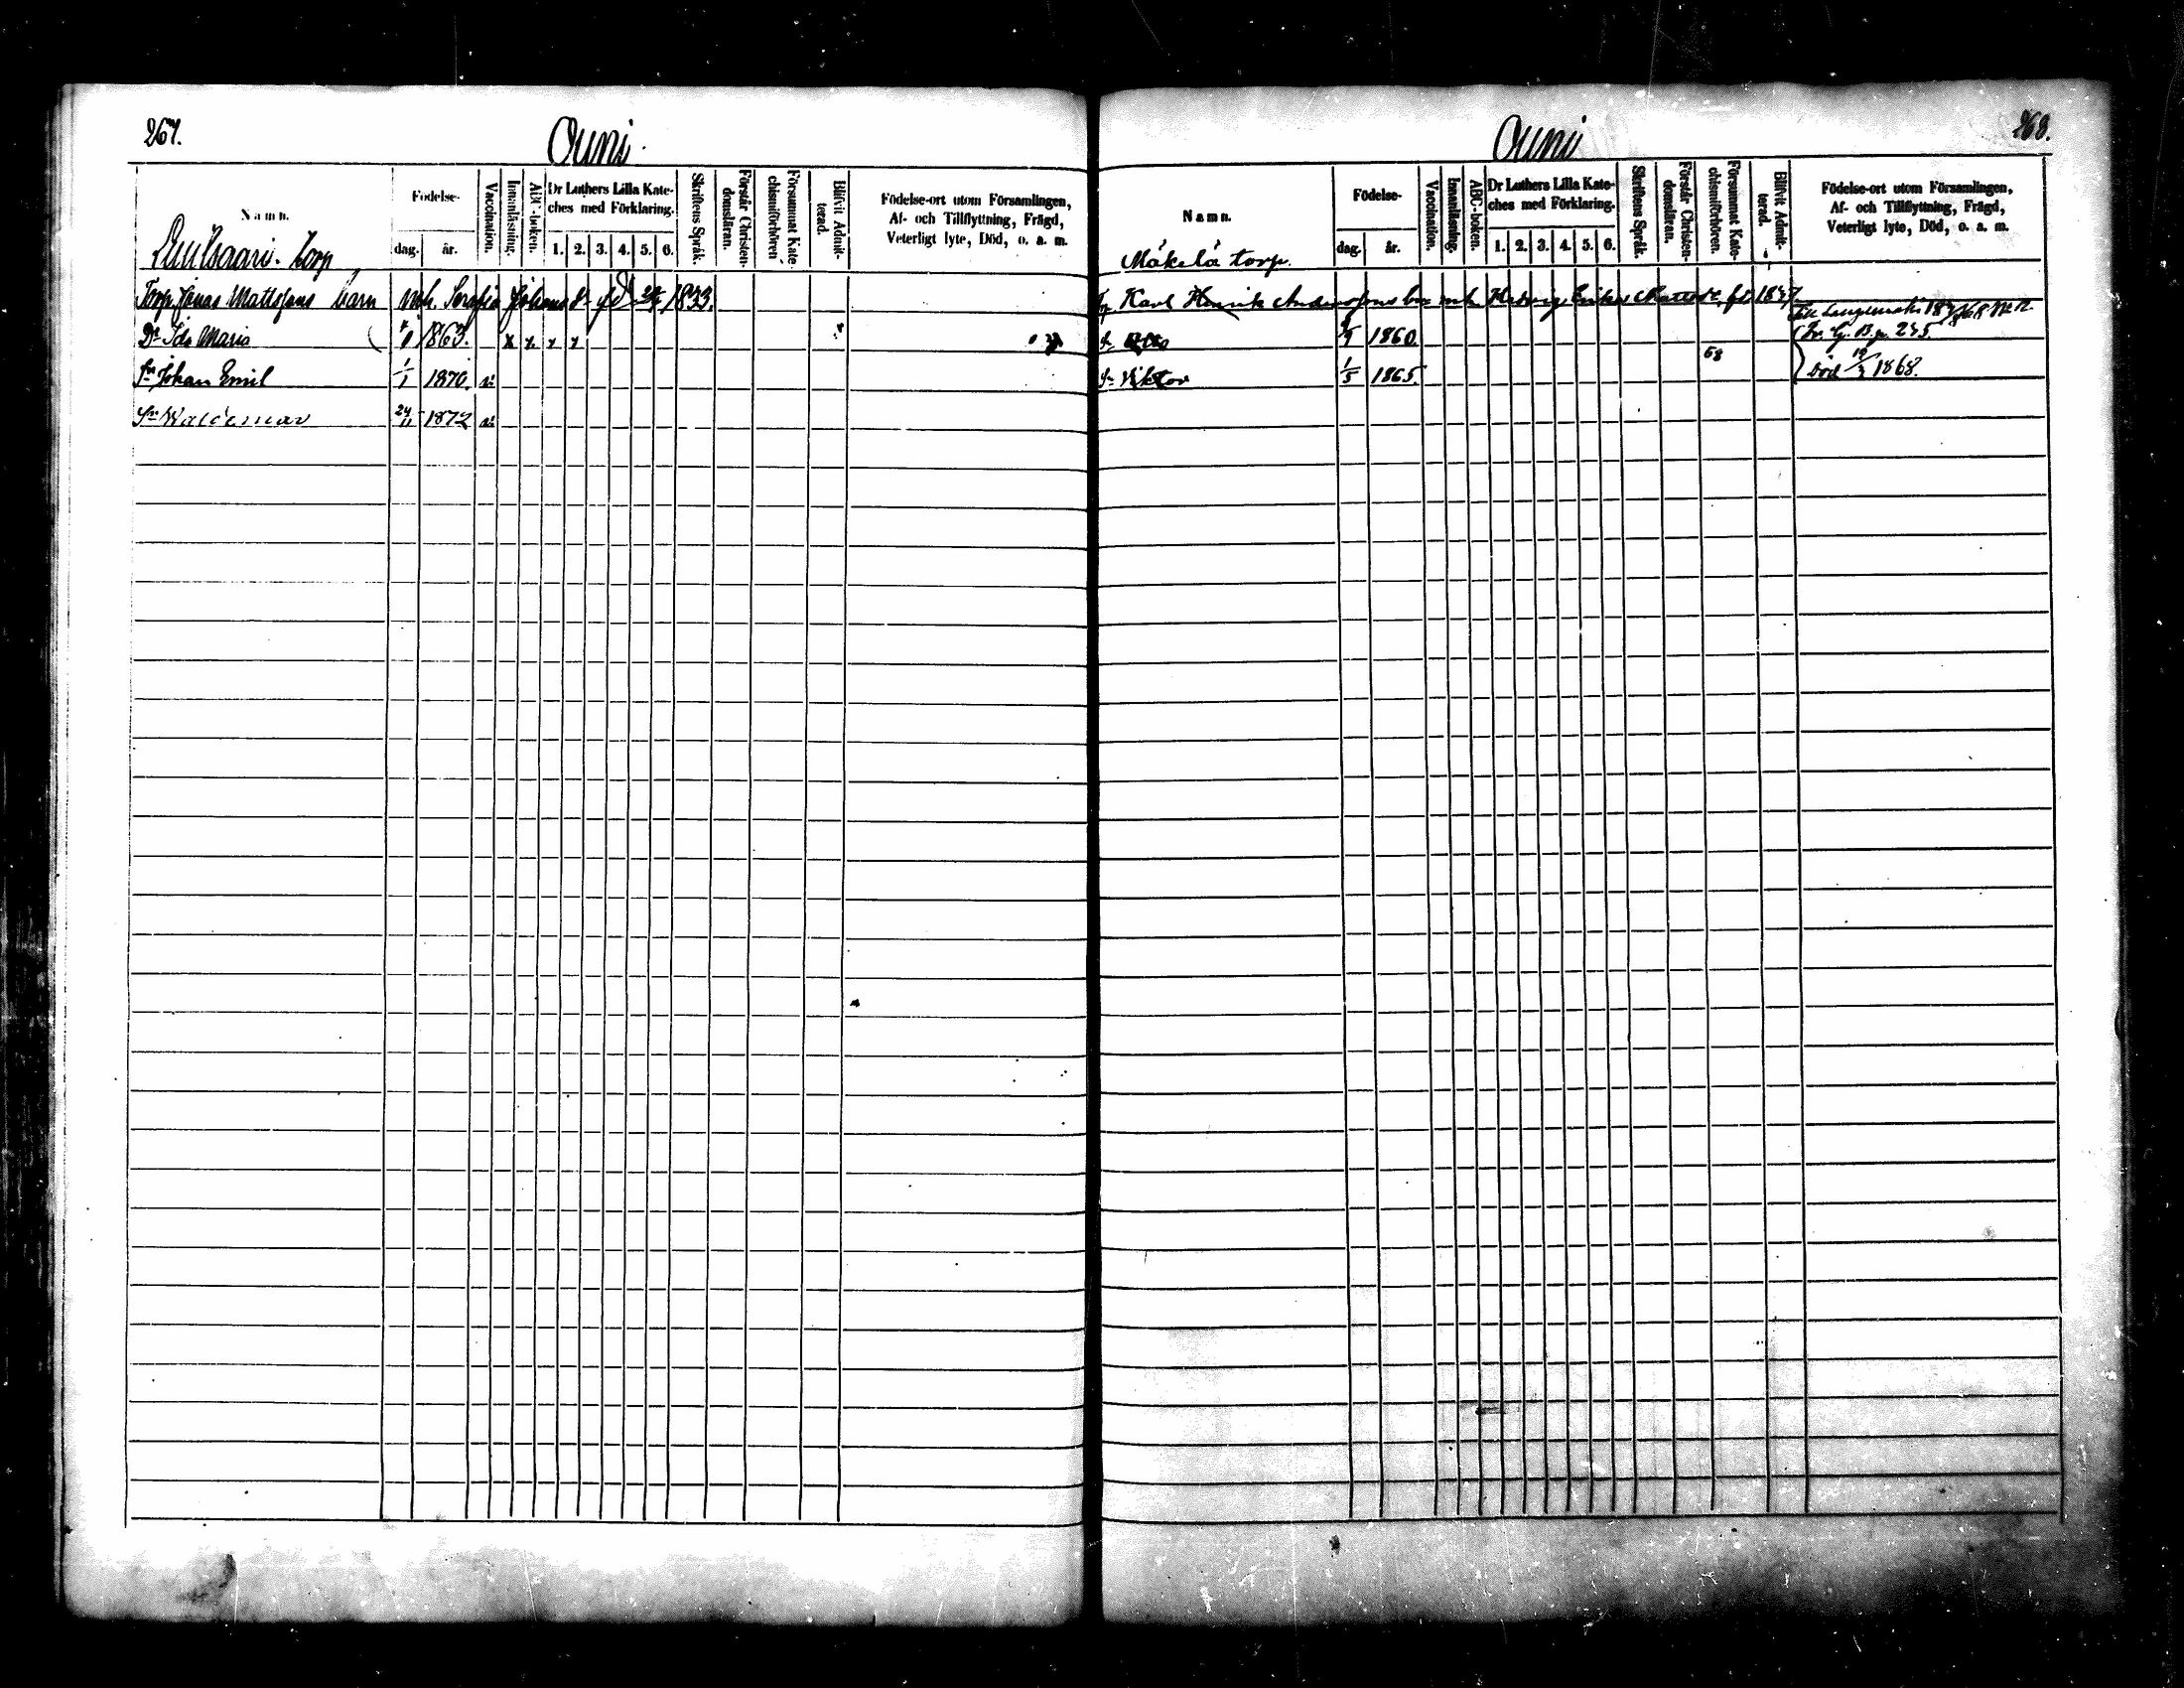 267.
Ouni
Namn.
Födelse-
dag. år.
Vaccination.
Innanläsning.
ABC-boken.
Dr Luthers Lilla Kate-
ches med Förklaring.
1. 2. 3. 4. 5. 6.
Skriftens Språk.
Förstår Christen-
domsläran.
Försummat Kate-
chismiförhören
Blifvit Admit-
terad.
Födelse-ort utom Församlingen,
Af- och Tillflyttning, Frägd,
Veterligt lyte, Död, o. a. m.
torp
Torp. Jonas Mattssons barn m.h. Serafia Johans d. 1833.
Dr Ida Maria 1863. x x x x
Sn Johan Emil 1/1 1870.
Sn Waldemar 24/11 1872
268.
Ouni
Namn.
Mäkelä torp.
Födelse-
dag. år.
Vaccination.
Innanläsning.
ABC-boken.
Dr Luthers Lilla Kate-
ches med Förklaring.
1. 2. 3. 4. 5. 6.
Skriftens Språk.
Förstår Christen-
domsläran.
Försummat Kate-
chismiförhören.
Blifvit Admit-
terad.
Födelse-ort utom Församlingen,
Af- och Tillflyttning, Frägd,
Veterligt lyte, Död, o. a. m.
Karl Henrik Anderssons m.h. Hedvig Erika
1860.
B. p. 235.
S. Viktor 1/5 1865. 68 död 1868.